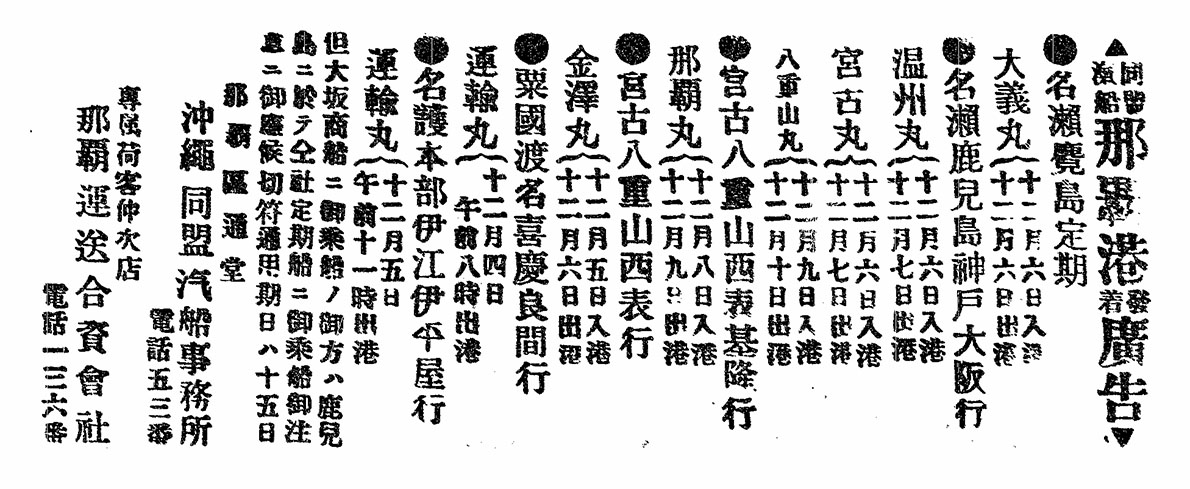 ▲同盟汽船那覇港發着廣告▼
●名瀬麑島定期
大義丸{十二月六日入港
十二月六日出港
●名瀬鹿兒島神戸大阪行
温州丸{十二月六日入港
十二月七日出港
宮古丸{十二月六日入港
十二月七日出港
八重山丸{十二月九日入港
十二月十日出港
●宮古八重山西表基隆行
那覇丸{十二月八日入港
十二月九日出港
●宮古八重山西表行
金澤丸{十二月五日入港
十二月六日出港
●粟國渡名喜慶良間行
運輸丸{十二月四日
午前八時出港
●名護本部伊江伊平屋行
運輸丸{十二月五日
午前十一時出港
但大坂商船ニ御乗船ノ御方ハ鹿兒
島ニ於テ仝社定期船ニ御乗船御注
意ニ御應候切符通用期日ハ十五日
那覇區通堂
沖繩同盟汽船事務所
電話五三番
專属荷客仲次店
那覇運送合資會社
電話一三六番